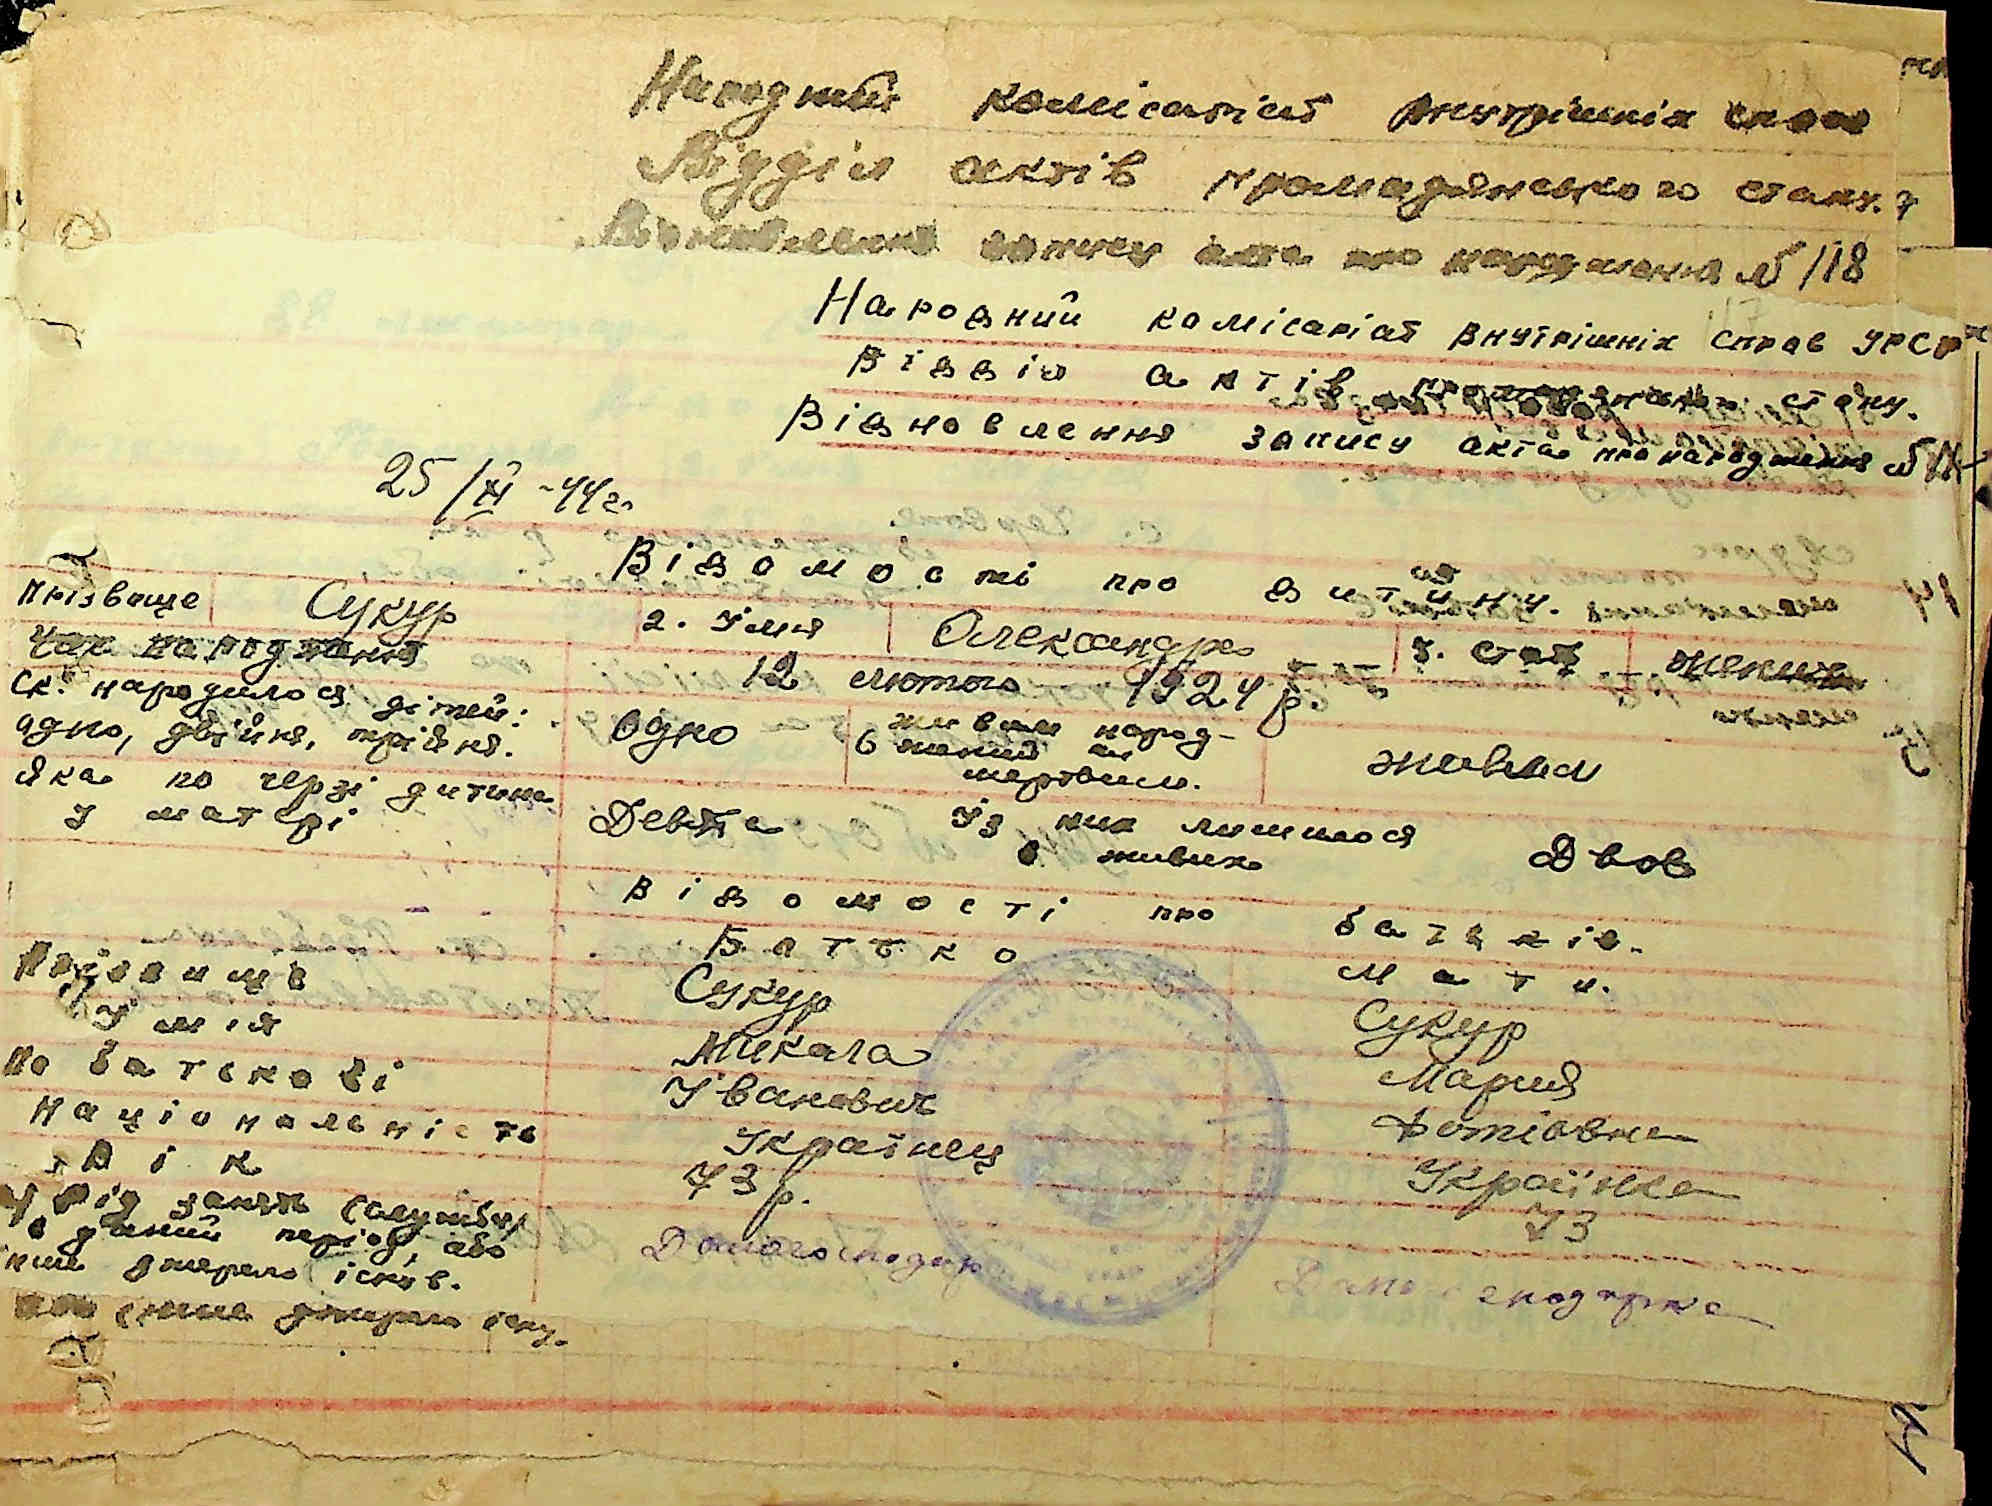 Народний комісаріат внутрішніх справ
Відділ актів громадянського стану.
Відновлення запису акта про народження № 118
Народний комісаріат внутрішніх справ УРСР
Відділ актів стану.
Відновлення запису акта про народження №
25/XI -44 г.
Відомості про дитину.
Прізвище Сукур 2. Умия Олександра 3. стать
Час народження 12 лютого 1924 р.
Ск. народилося дітей: одно, двійня, трійня. Одно 6 живим народжений чи мертвим. живим
Яка по черзі дитина у матері Девята Уз них лишилося в живих Двов
Відомості про батьків.
Батько Мати.
Прізвище Сукур Сукур
Умия Микола Мария
По батькові Уванович Фотіовна
Національність Українец Українка
Вік 43 р. 43
Рід занять (служби)
в даний період, або
джерело існув. Домогосподар Домогосподарка
джерело існу.